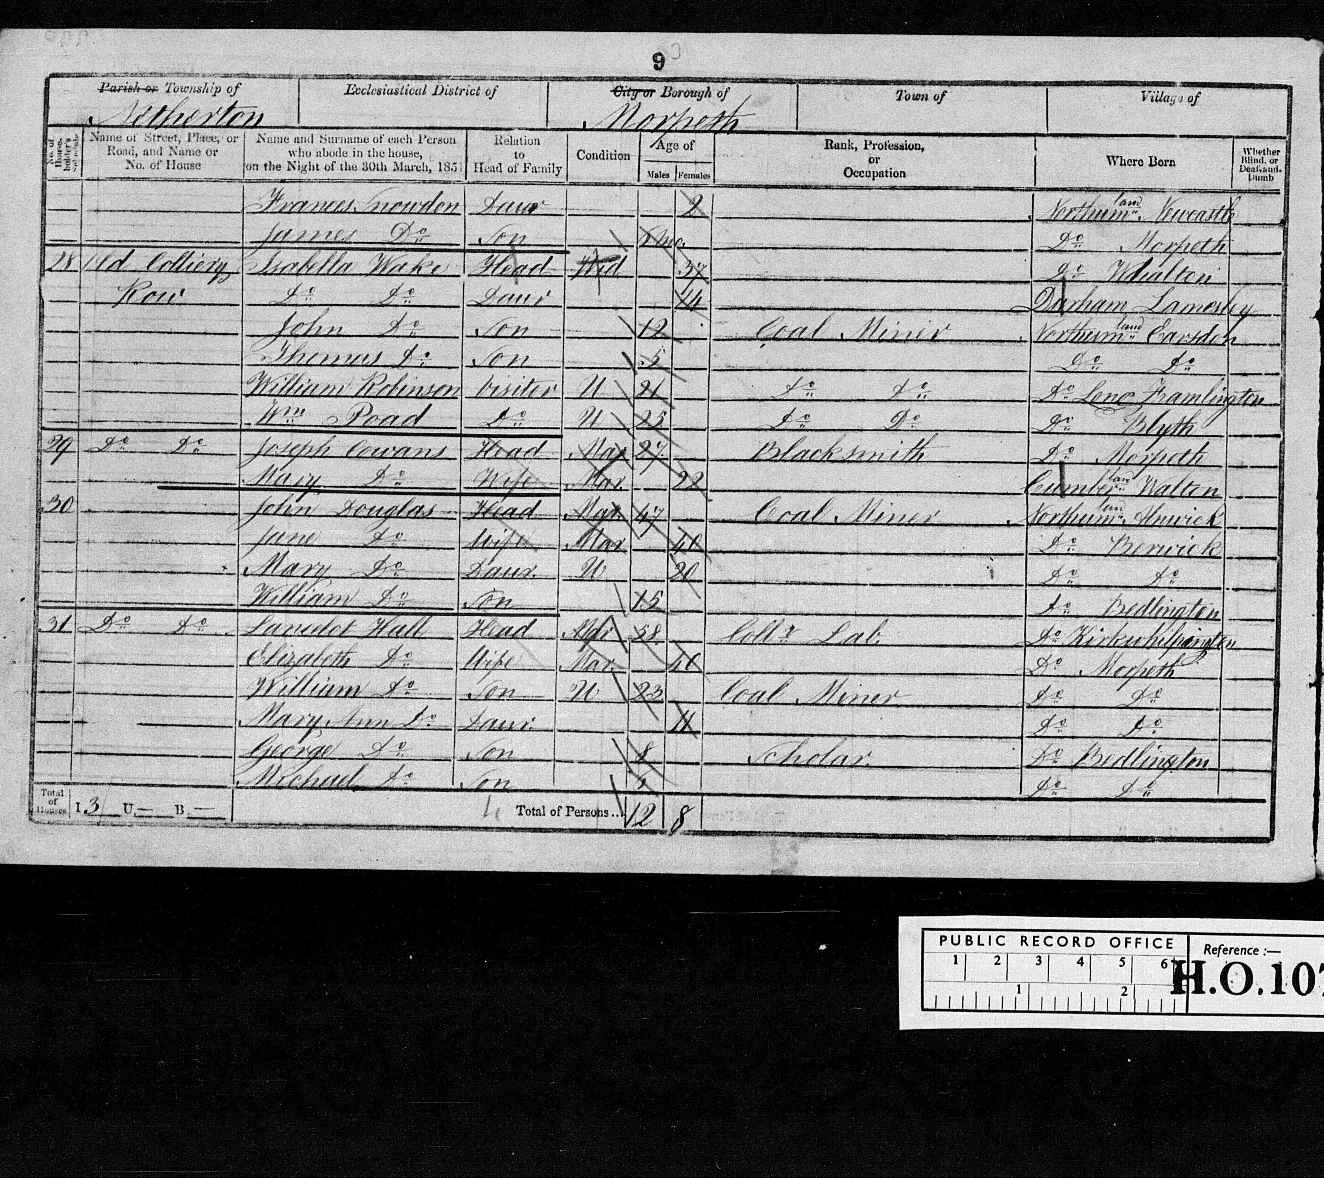 9
Parish or Township of Ecclesiastical District of City or Borough of Town of Village of
Netherton Morpeth
No. of House-holder's Schedule Name of Street, Place, or Road, and Name or No. of House Name and Surname of each Person who abode in the house, on the Night of the 30th March, 1851 Relation to Head of Family Condition Age of Males Females Rank, Profession, or Occupation Where Born Whether Blind, or Deaf-and-Dumb
Frances Snowdon Daur 2 Northumland Newcastle
James Do Son Mo. Do Morpeth
28 Old Colliery Isabella Wake Head Wid 37 Do Whalton
Row Do Do Daur 14 Durham Lamesley
John Do Son 12 Coal Miner Northumland Earsdon
Thomas Do Son 5 Do Do
William Robinson Visiter U 21 Do Do Do Long Framlington
Wm Poad Do U 25 Do Do Do Blyth
29 Do Do Joseph Cowans Head Mar 27 Blacksmith Do Morpeth
Mary Do Wife Mar 22 Cumberland Walton
30 John Douglas Head Mar 47 Coal Miner Northumlan Alnwick
Jane Do Wife Mar 40 Do Berwick
Mary Do Daur. U 20 Do Do
William Do Son 15 Do Bedlington
31 Do Do Lancelot Hall Head Mar 58 Collr Lab. Do Kirkwhelpington
Elizabeth Do Wife Mar 40 Do Morpeth
William Do Son U 23 Coal Miner Do Do
Mary Ann Do Daur. 11 Do Do
George Do Son 8 Scholar Do Bedlington
Michael Do Son Do Do
Total of Houses I 3 U — B — Total of Persons... 12 8
PUBLIC RECORD OFFICE Reference :—
1 2 3 4 5 6
1 2
H.O.107